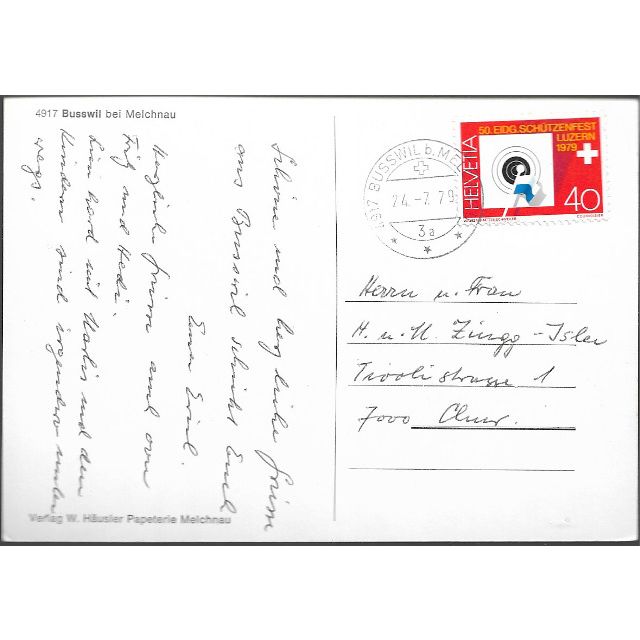 4917 Busswil bei Melchnau
Schöne und herzliche Grüsse
aus Busswil schickt Euch
Euer Emil.
Herzliche Grüsse auch von
Trudi und Hedi.
Lienhard mit Martis und den
Kindern sind irgendwo unter
wegs.
Verlag W. Häusler Papeterie Melchnau
4917 BUSSWIL b. MEL
24.-7.79
3a
50. EIDG. SCHÜTZENFEST
LUZERN
1979
HELVETIA
40
COURVOISIER
Herrn u. Frau
H. u. U. Zingg-Isler
Tivolistrasse 1
7000 Chur.